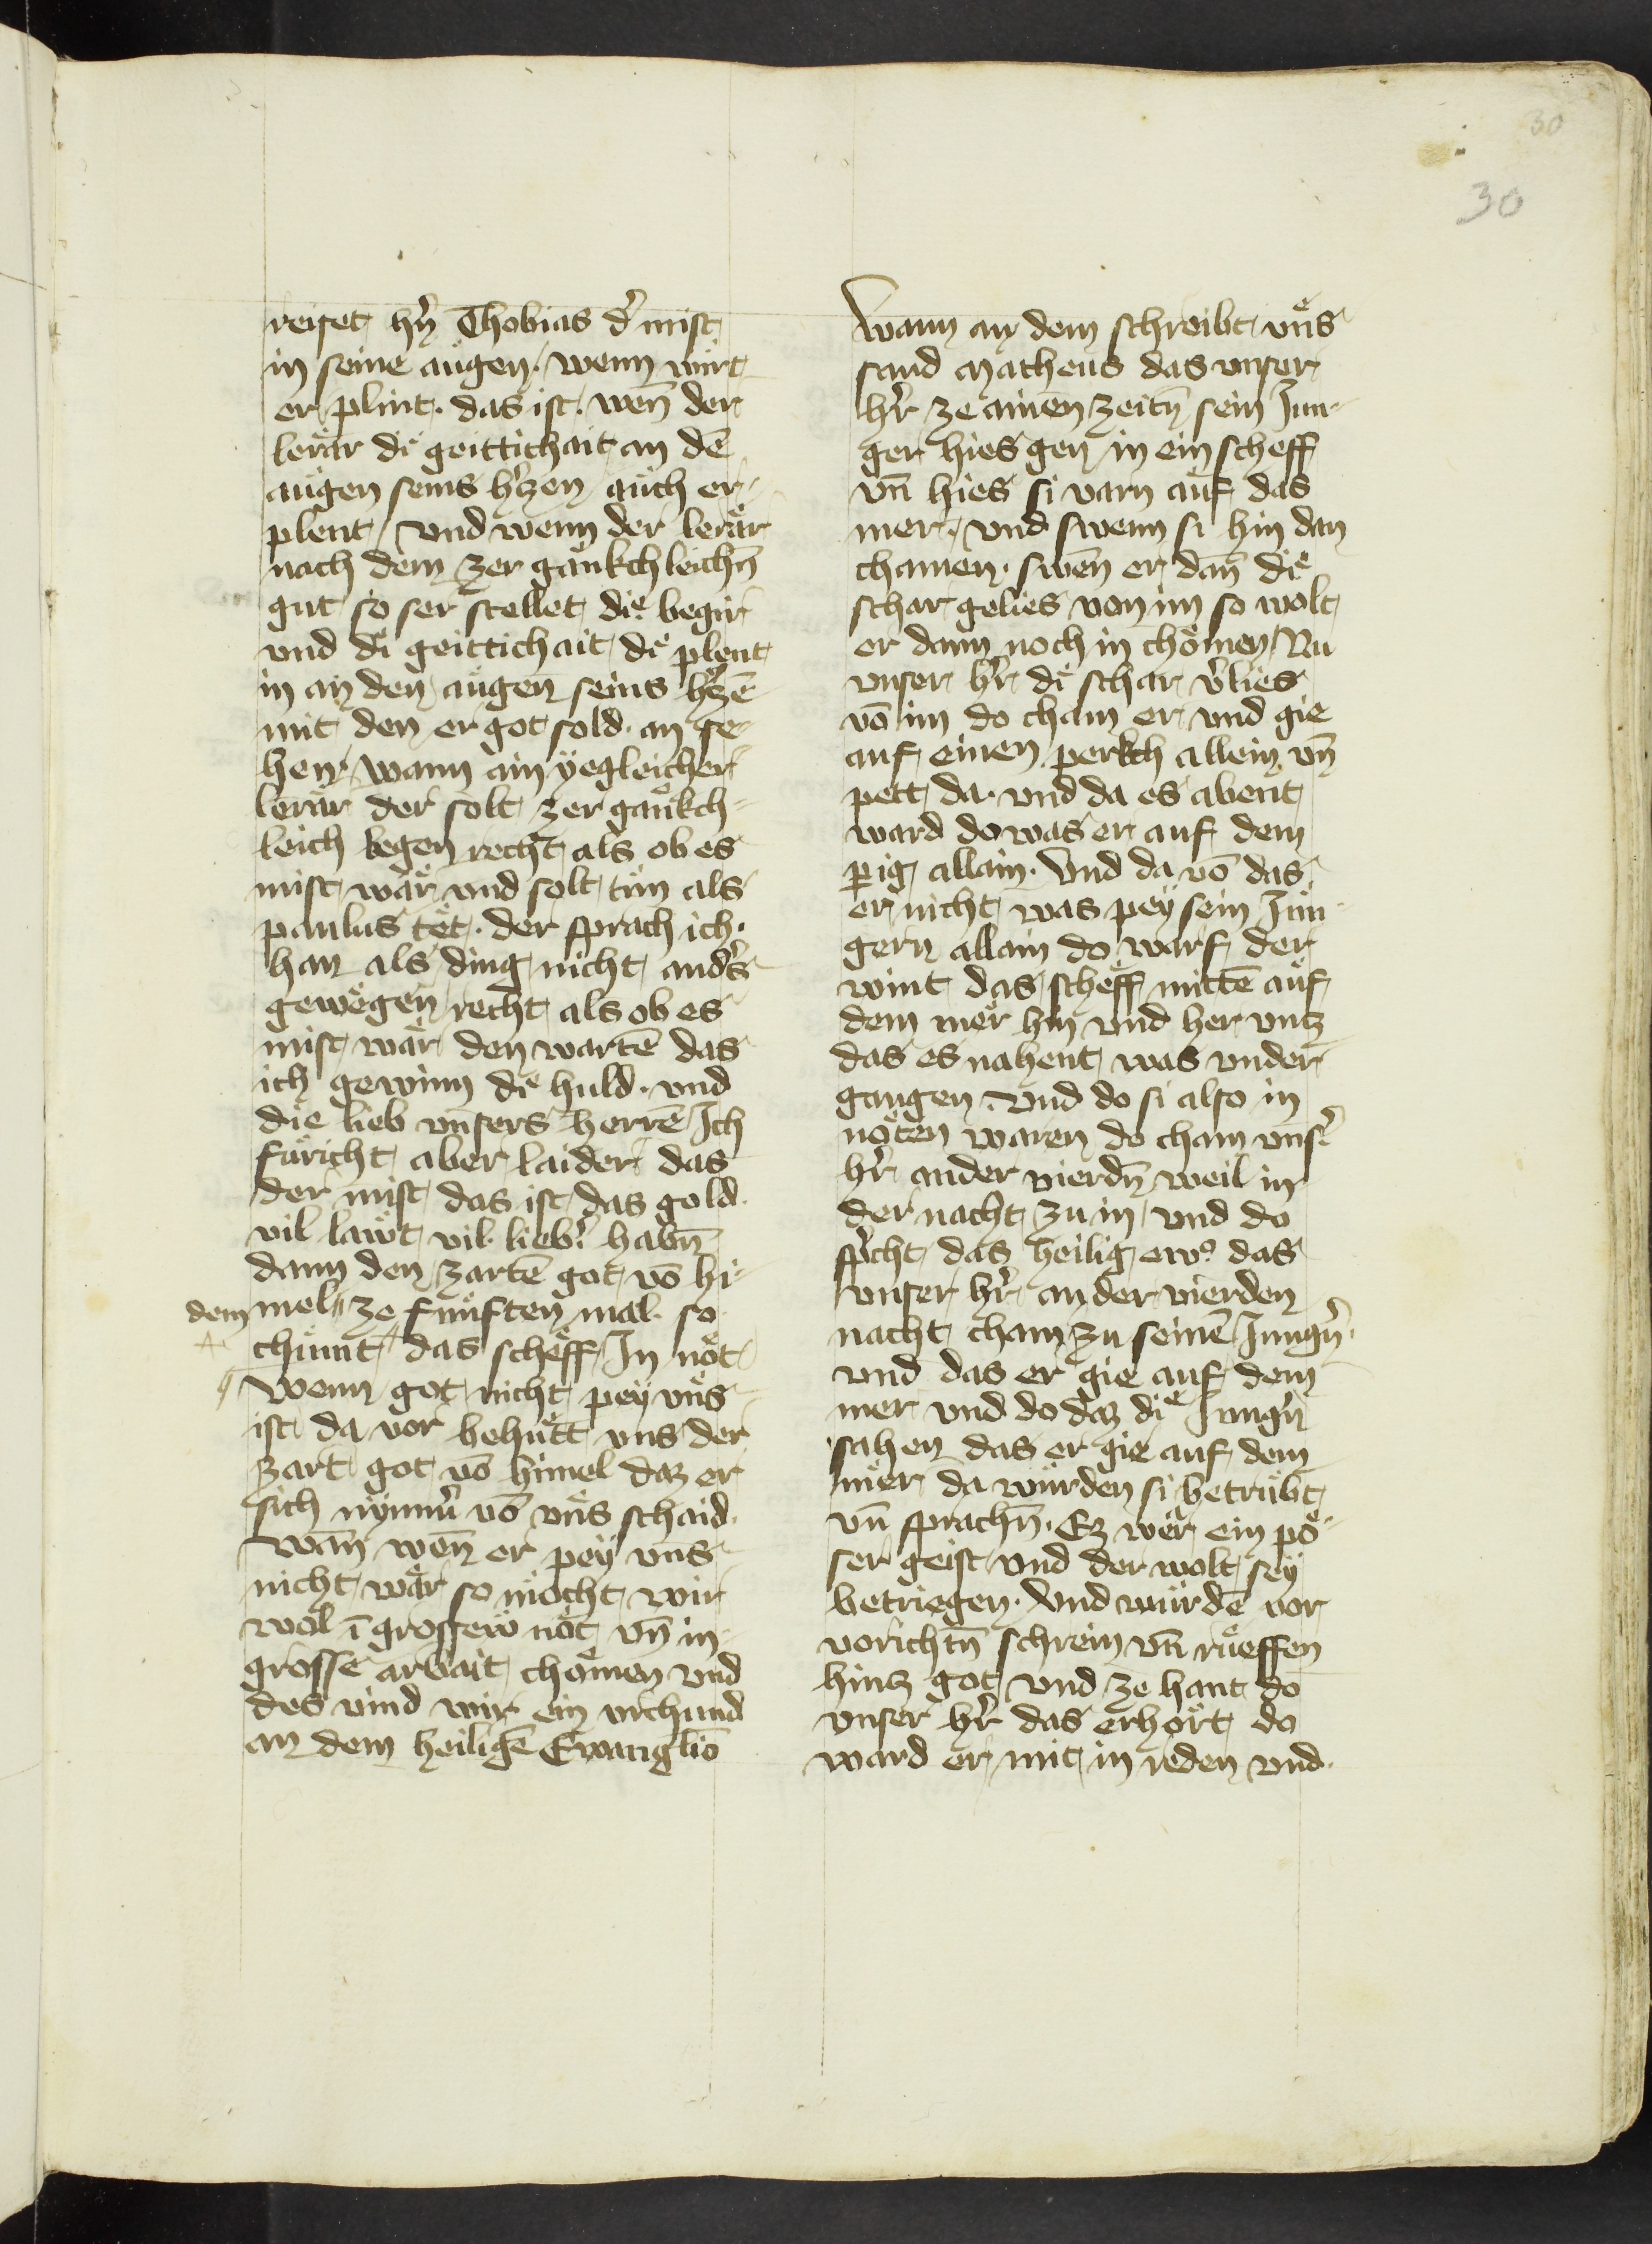 30
30
reiset hr̄n Thobias dˀ mist
in seine augen. wenn wirt
er plint. das ist. wen̄ der
lerär dï geittichait an dē
augen seins hˀczen auch er-
plent / vnd wenn der lerär
nach dem zer gänkchleichn̄
gut so ser stellet die begir
vnd dï geittichait dïe plent
in an den augen seins hˀczē
mit den er got sold. an se-
hen. wann ain yegleicher
lerär der solt zer gänkch-
leich begen recht als ob es
mist wär vnd solt tün als
paulus tet. der sprach ich.
han als ding nicht andˀs
gewegen recht als ob es
mist wär den wartē das
ich gewinn dïe huld. vnd
die lieb vnsers herrē Ich
füricht aber laider das
der mist das ist das gold.
vil läwt vil liebˀ habn̄
dann den zartē got vō hi-
dem mel // ze fünften mal. so
chumt das scheff In nöt
wenn got nicht pey vns
ist da vor behütt vns der
zart got vō himel daz er
sich nymmˀ vō vns schaid.
wan̄ wen̄ er pey vns
nicht wär so möcht wir
wol ī grossew nöt vn̄ in
grosse arbait chömen vnd
des vind wir ein vrchund
an dem heiligē Ewanglio
Wann an dem schreibt vns
sand Matheus das vnser
hˀr ze ainen zeitn̄ sein Jun-
ger hies gen in ein scheff
vn̄ hies si varn auf das
mer. vnd swenn si hin dan
chamen. swen̄ er dan̄ die
schar gelies von im so wolt
er dann noch in chömen Nu
vnser hˀr dïe schar vˀlies
vō im do cham er vnd gie
auf einen perkch allein vn̄
pett da. vnd da es abent
ward do was er auf dem
perig allain. Vnd da vō das
er nicht was pey sein Jün-
gern allain do warf der
wint das scheff mittē auf
dem mer hin vnd her vntz
das es nahent was vnder
gangen. vnd do si also in
nöten waren do cham vnsˀ
hˀr ander vierdn̄ weil in
der nacht zu in vnd do
spˀcht das heilig ewꝰ das
vnser hˀr an der vierden
nacht cham zu seinē Jungˀn
vnd das er gie auf dem
mer vnd do daz die Jungˀn
sahen das er gie auf dem
mer da würden si betrübt
vn̄ sprachn̄. Ez wer ein pö-
ser geist vnd der wolt sey
betriegen. Vnd würdē vor
vorichtn̄ schrein vn̄ rueffen
hintz got vnd ze hant do
vnser hˀr das erhört do
ward er mit in reden vnd.